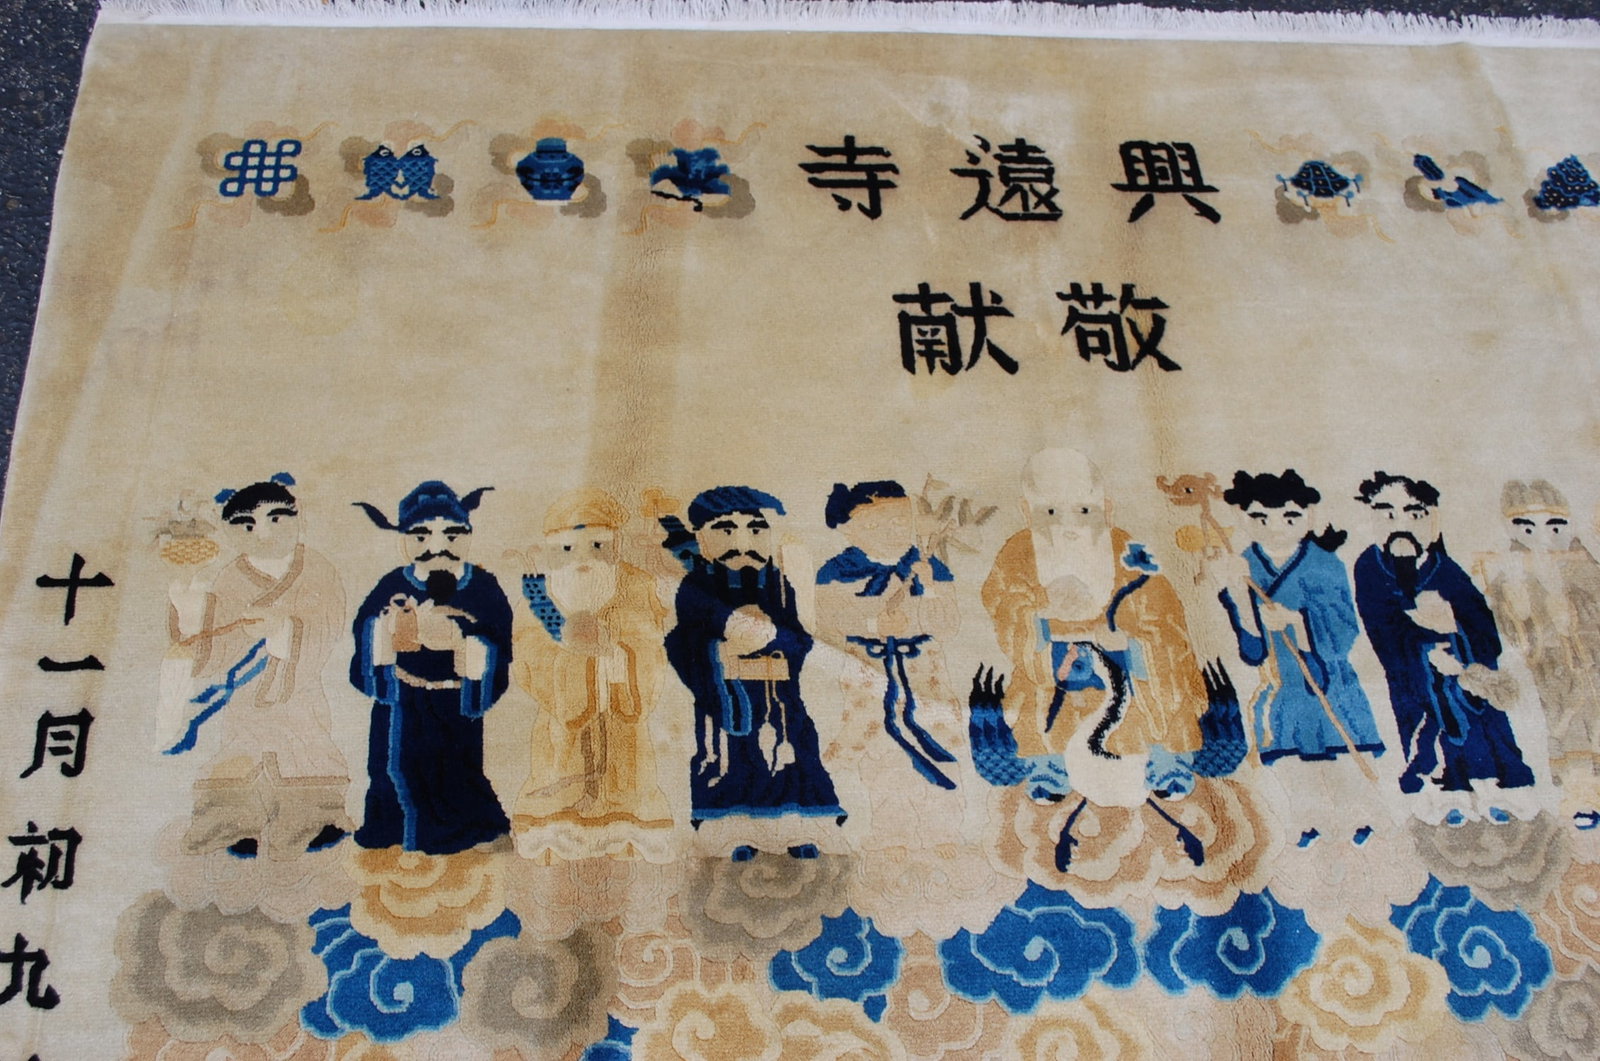 興遠寺
敬献
十一月初九